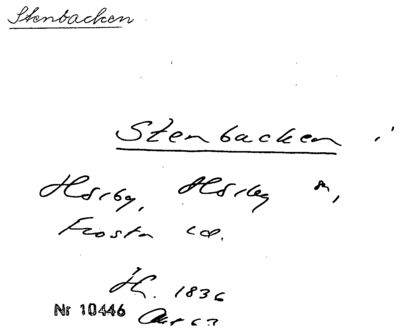 Stenbacken
Stenbacken i
Hörby, Hörby sn,
Frosta hd.
H. 1836
Nr 10446